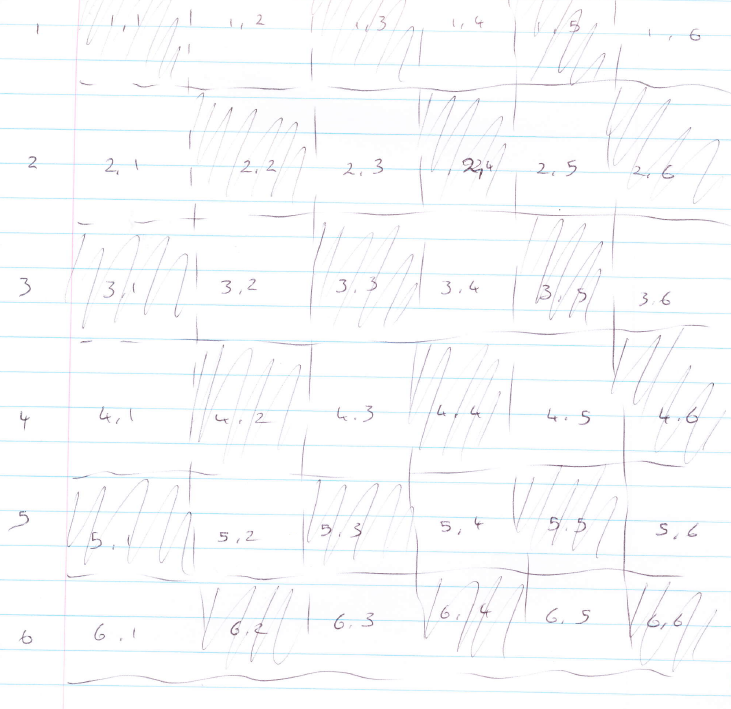 1 1,1 1,2 1,3 1,4 1,5 1,6
2 2,1 2,2 2,3 2,4 2,5 2,6
3 3,1 3,2 3,3 3,4 3,5 3,6
4 4,1 4,2 4.3 4,4 4.5 4.6
5 5,1 5,2 5,3 5,4 5.5 5,6
6 6.1 6.2 6.3 6,4 6.5 6,6